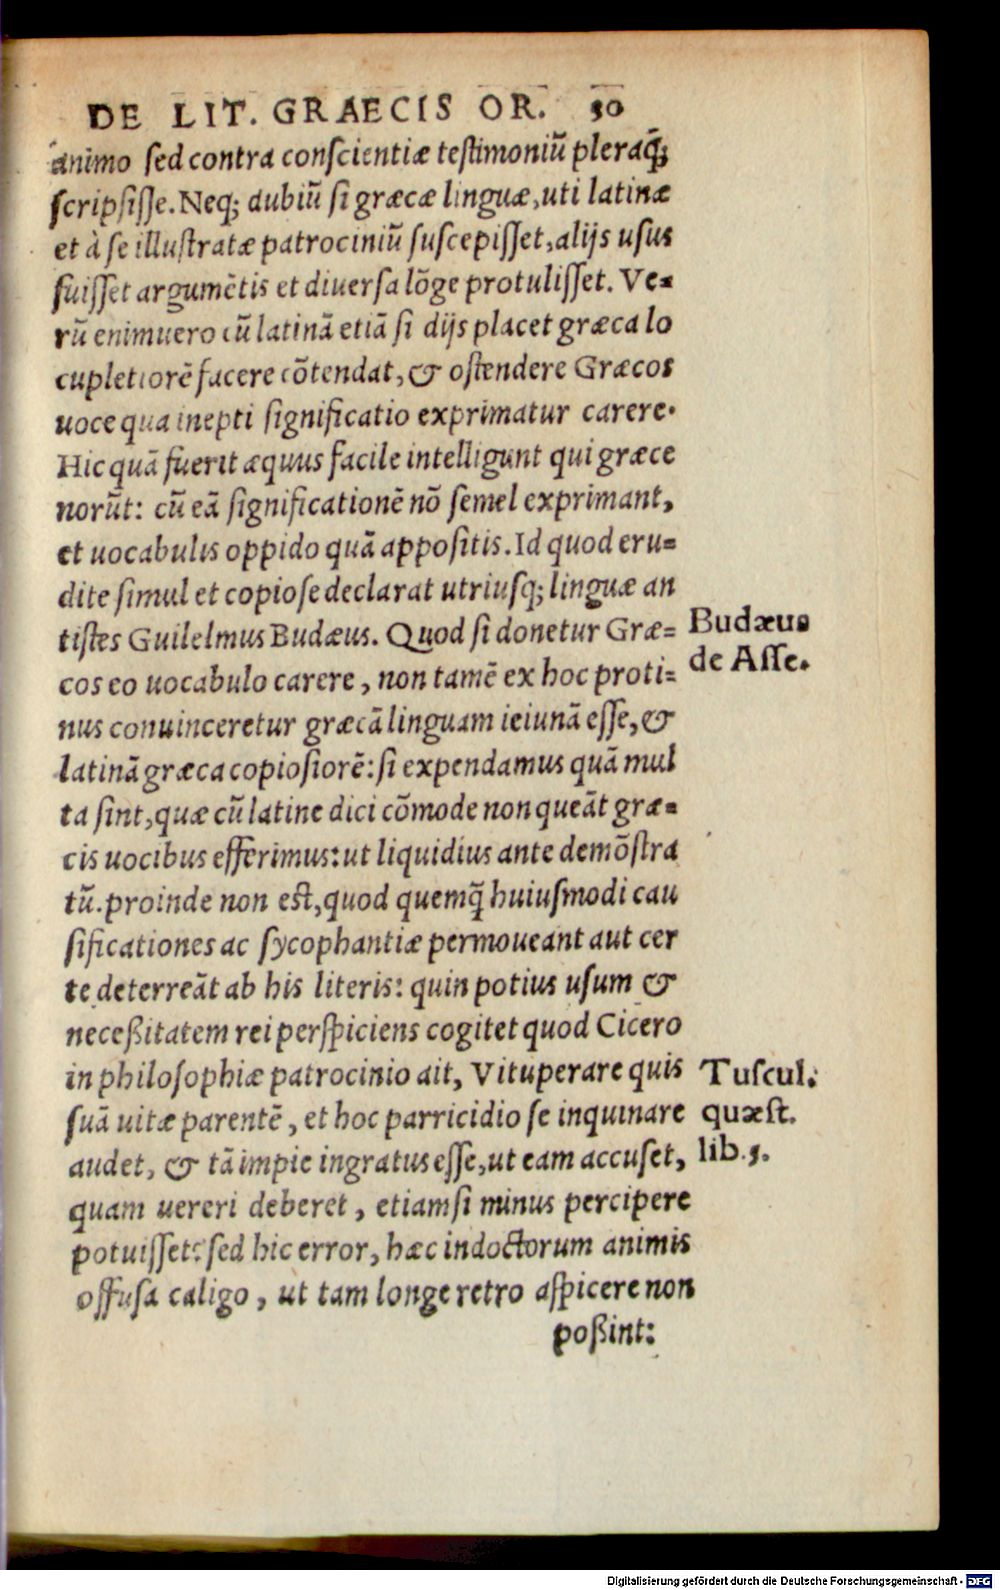 DE LIT. GRAECIS OR. 30
animo sed contra conscientiæ testimoniũ pleraq̃;
scripsisse. Neq; dubiũ si græcæ linguæ, uti latinæ
et à se illustratæ patrociniũ suscepisset, alijs usus
fuisset argumẽtis et diuersa lõge protulisset. Ve-
rũ enimuero cũ latinã etiã si dijs placet græca lo
cupletiorẽ facere cõtendat, & ostendere Græcos
uoce qua inepti significatio exprimatur carere.
Hic quã fuerit æquus facile intelligunt qui græce
norũt: cũ eã significationẽ nõ semel exprimant,
et uocabulis oppido quã appositis. Id quod eru-
dite simul et copiose declarat utriusq; linguæ an
tistes Guilelmus Budæus. Quod si donetur Græ-
cos eo uocabulo carere, non tamẽ ex hoc proti-
nus conuinceretur græcã linguam ieiunã esse, &
latinã græca copiosiorẽ: si expendamus quã mul
ta sint, quæ cũ latine dici cõmode non queãt græ-
cis uocibus efferimus: ut liquidius ante demõstra
tũ. proinde non est, quod quemq̃ huiusmodi cau
sificationes ac sycophantiæ permoueant aut cer
te deterreãt ab his literis: quin potius usum &
neceßitatem rei perspiciens cogitet quod Cicero
in philosophiæ patrocinio ait, Vituperare quis
suã uitæ parentẽ, et hoc parricidio se inquinare
audet, & tã impie ingratus esse, ut eam accuset,
quam uereri deberet, etiamsi minus percipere
potuisset: sed hic error, hæc indoctorum animis
offusa caligo, ut tam longe retro aspicere non
poßint:
Budæus
de Asse.
Tuscul.
quæst.
lib. 5.
Digitalisierung gefördert durch die Deutsche Forschungsgemeinschaft - DFG